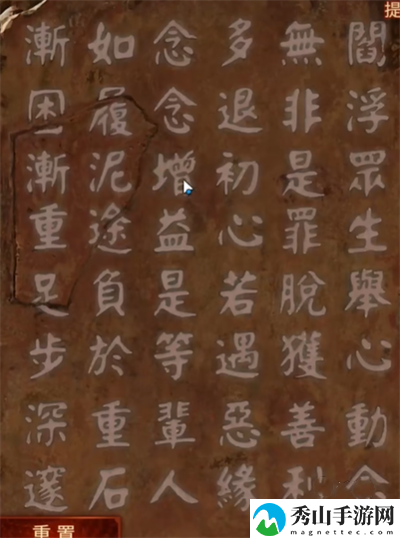 閻浮眾生舉心動念
無非是罪脫獲善利
多退初心若遇惡緣
念念增益是等輩人
如履泥途負於重石
漸困漸重足步深邃
提
重置
秀山手游网
magnettec.com